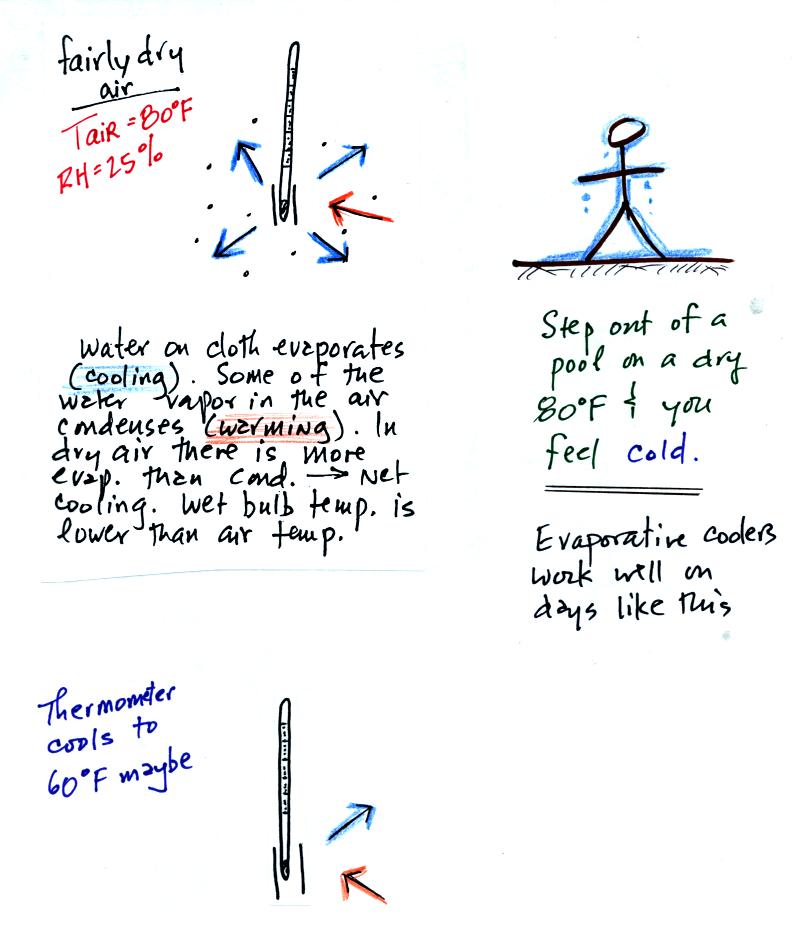 fairly dry
air
TAIR = 80°F
RH = 25%
water on cloth evaporates
(cooling). Some of the
water vapor in the air
condenses (warming). In
dry air there is more
evap. than cond. → Net
cooling. Wet bulb temp. is
lower than air temp.
Step out of a
pool on a dry
80°F & you
feel cold.
Evaporative coolers
work well on
days like this
Thermometer
cools to
60°F maybe